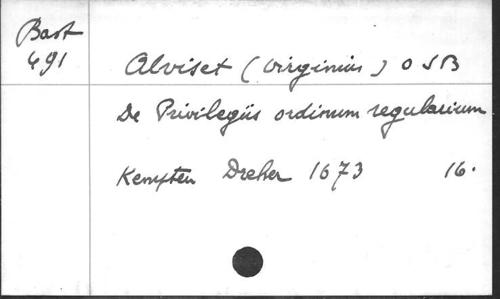 Bast
491
Alviset (Virginius) OSB
De Privilegiis ordinum regularium
Kempten Dreher 1673 16.